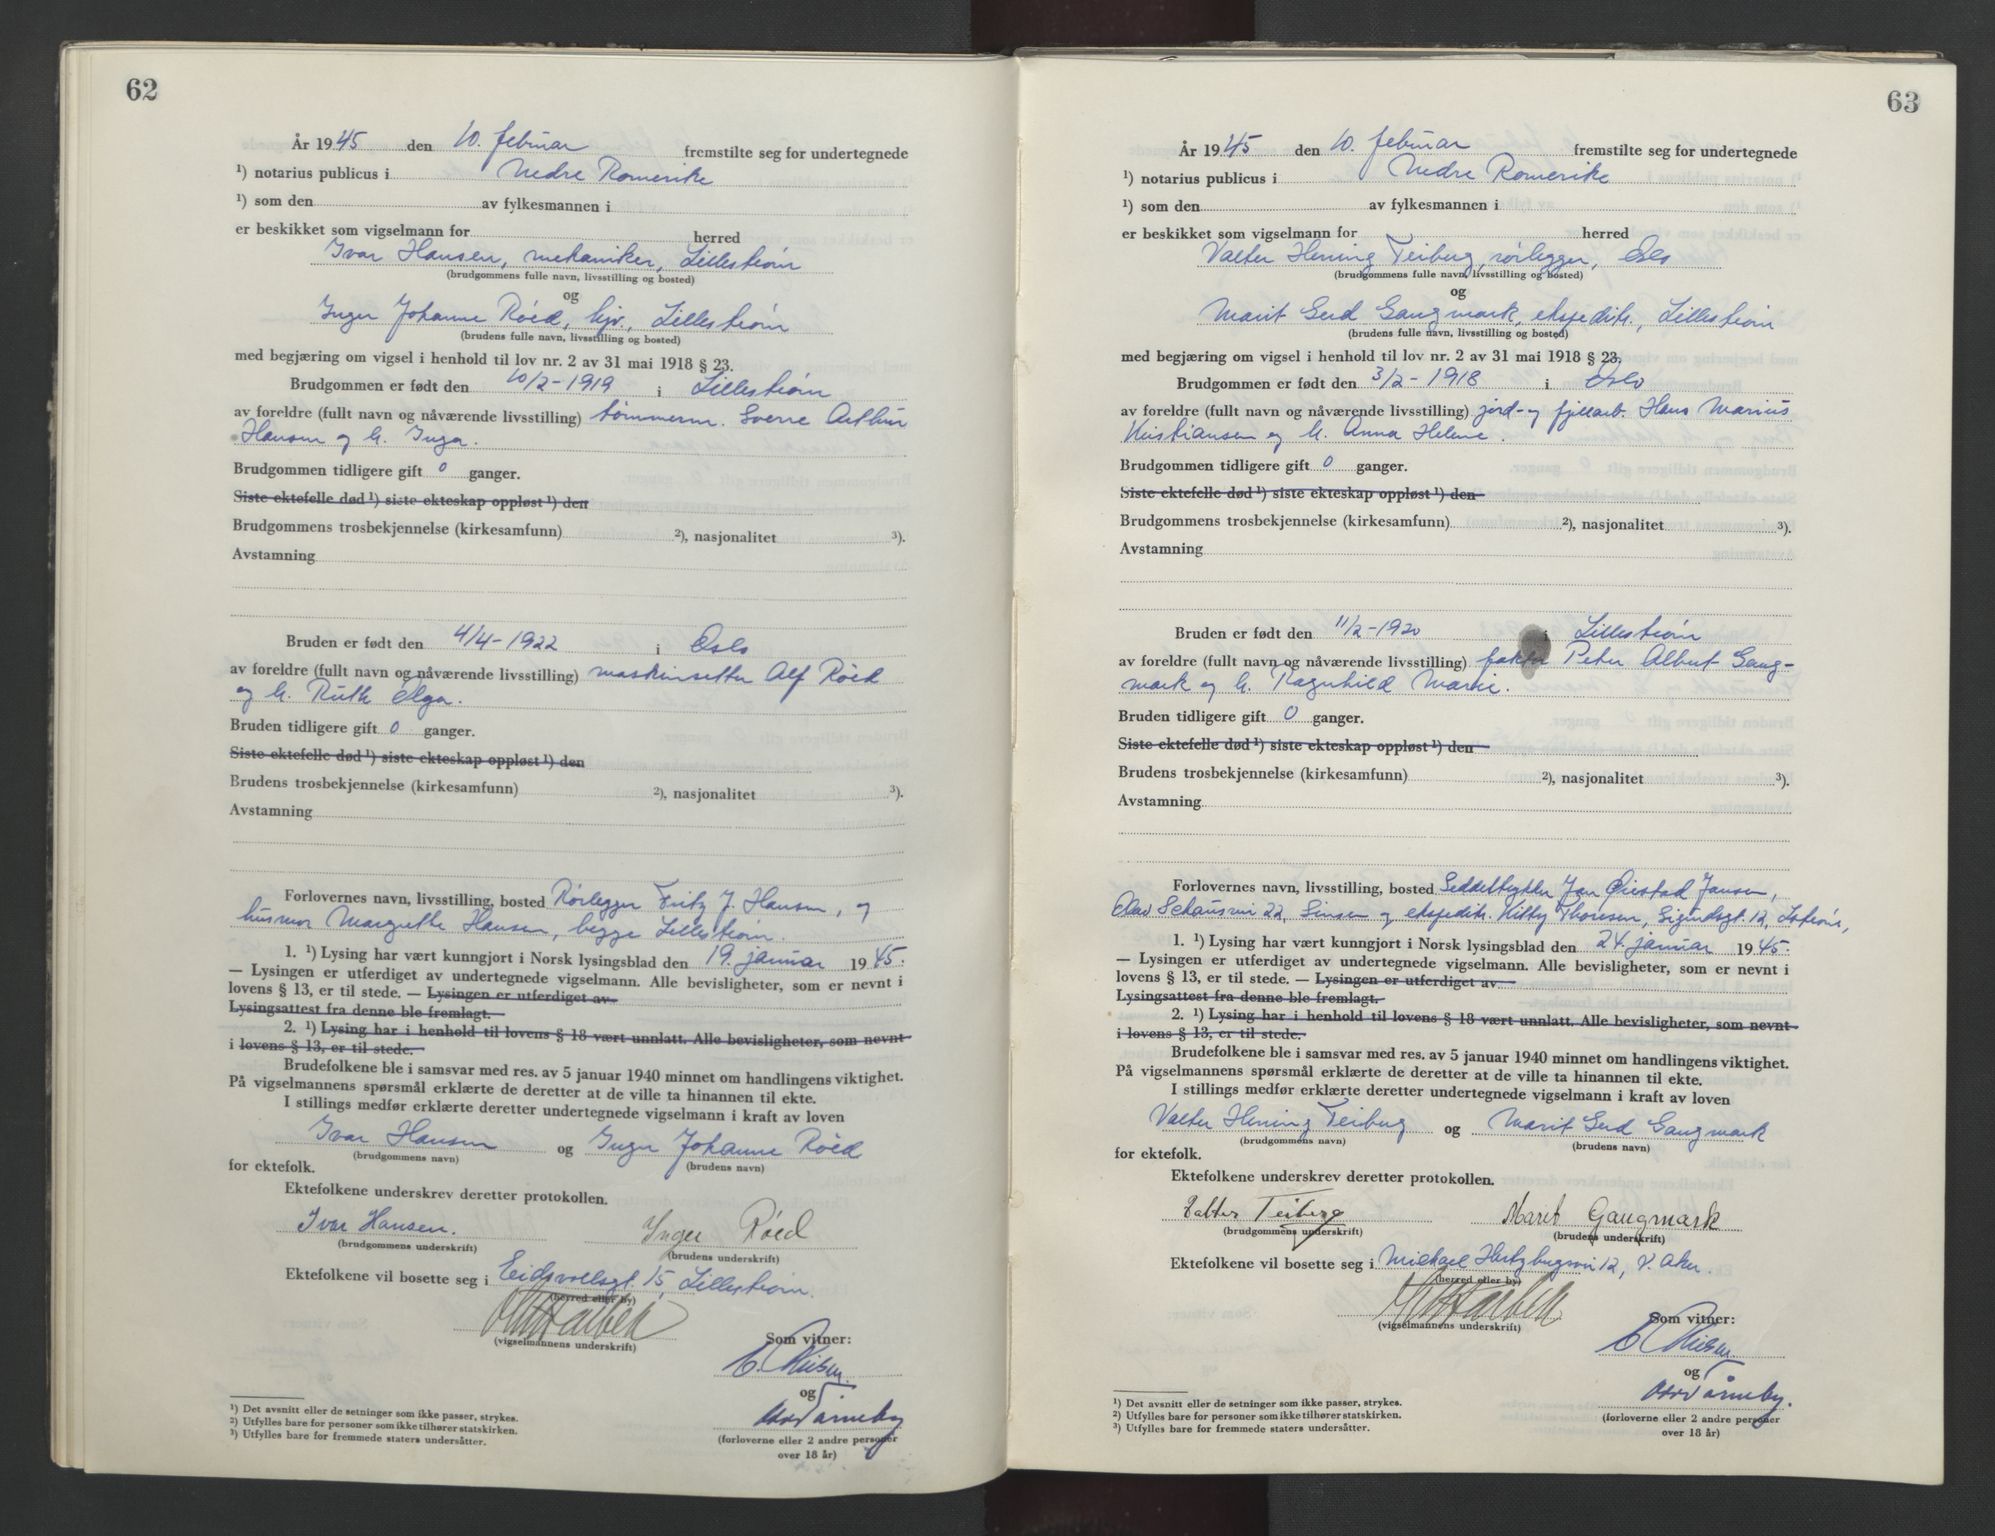 62
År 1945 den 10. februar fremstilte seg for undertegnede
¹) notarius publicus i Nedre Romerike
¹) som den av fylkesmannen i
er beskikket som vigselmann for herred
Ivar Hansen, mekaniker, Lillestrøm
(brudgommens fulle navn, livsstilling og bosted)
og
Inger Johanne Röed, hjv., Lillestrøm
(brudens fulle navn, livsstilling og bosted)
med begjæring om vigsel i henhold til lov nr. 2 av 31 mai 1918 § 23.
Brudgommen er født den 10/2-1919 i Lillestrøm
av foreldre (fullt navn og nåværende livsstilling) tømmerm. Sverre Arthur
Hansen og h. Inga.
Brudgommen tidligere gift 0 ganger.
Siste ektefelle død ¹) siste ekteskap oppløst ¹) den
Brudgommens trosbekjennelse (kirkesamfunn) ²), nasjonalitet ³).
Avstamning
Bruden er født den 4/4-1922 i Oslo
av foreldre (fullt navn og nåværende livsstilling) maskinsetter Alf Röed
og h. Ruth Elga.
Bruden tidligere gift 0 ganger.
Siste ektefelle død ¹) siste ekteskap oppløst ¹) den
Brudens trosbekjennelse (kirkesamfunn) ²), nasjonalitet ³).
Avstamning
Forlovernes navn, livsstilling, bosted Rørlegger Fritz J. Hansen, og
husmor Margrethe Hansen, begge Lillestrøm.
1. ¹) Lysing har vært kunngjort i Norsk lysingsblad den 19. januar 1945.
— Lysingen er utferdiget av undertegnede vigselmann. Alle bevisligheter, som er nevnt i
lovens § 13, er til stede. — Lysingen er utferdiget av
Lysingsattest fra denne ble fremlagt.
2. ¹) Lysing har i henhold til lovens § 18 vært unnlatt. Alle bevisligheter, som nevnt
i lovens § 13, er til stede.
Brudefolkene ble i samsvar med res. av 5 januar 1940 minnet om handlingens viktighet.
På vigselmannens spørsmål erklærte de deretter at de ville ta hinannen til ekte.
I stillings medfør erklærte deretter undertegnede vigselmann i kraft av loven
Ivar Hansen og Inger Johanne Röed
(brudgommens navn) (brudens navn)
for ektefolk.
Ektefolkene underskrev deretter protokollen.
Ivar Hansen. Inger Röed
(brudgommens underskrift) (brudens underskrift)
Ektefolkene vil bosette seg i Eidsvollsgt. 15, Lillestrøm.
(herred eller by)
(vigselmannens underskrift)
Som vitner:
og
(forloverne eller 2 andre personer
over 18 år)
¹) Det avsnitt eller de setninger som ikke passer, strykes.
²) Utfylles bare for personer som ikke tilhører statskirken.
³) Utfylles bare for fremmede staters undersåtter.
63
År 1945 den 10. februar fremstilte seg for undertegnede
¹) notarius publicus i Nedre Romerike
¹) som den av fylkesmannen i
er beskikket som vigselmann for herred
Valter Hening Teiberg, rørlegger, Oslo
(brudgommens fulle navn, livsstilling og bosted)
og
Marit Gerd Gangmark, ekspeditr., Lillestrøm
(brudens fulle navn, livsstilling og bosted)
med begjæring om vigsel i henhold til lov nr. 2 av 31 mai 1918 § 23.
Brudgommen er født den 3/2-1918 i Oslo
av foreldre (fullt navn og nåværende livsstilling) jord- og fjellarb. Hans Marius
Kristiansen og h. Anna Helene.
Brudgommen tidligere gift 0 ganger.
Siste ektefelle død ¹) siste ekteskap oppløst ¹) den
Brudgommens trosbekjennelse (kirkesamfunn) ²), nasjonalitet ³).
Avstamning
Bruden er født den 11/2-1920 i Lillestrøm
av foreldre (fullt navn og nåværende livsstilling) faktor Peter Albert Gang-
mark og h. Ragnhild Marie.
Bruden tidligere gift 0 ganger.
Siste ektefelle død ¹) siste ekteskap oppløst ¹) den
Brudens trosbekjennelse (kirkesamfunn) ²), nasjonalitet ³).
Avstamning
Forlovernes navn, livsstilling, bosted Seddeltrykker Jan Øiestad Jansen,
Olav Schausvei 22, Sinsen og ekspeditr. Kitty Thoresen, Sigurdsgt. 12, L.strøm,
1. ¹) Lysing har vært kunngjort i Norsk lysingsblad den 24. januar 1945.
— Lysingen er utferdiget av undertegnede vigselmann. Alle bevisligheter, som er nevnt i
lovens § 13, er til stede. — Lysingen er utferdiget av
Lysingsattest fra denne ble fremlagt.
2. ¹) Lysing har i henhold til lovens § 18 vært unnlatt. Alle bevisligheter, som nevnt
i lovens § 13, er til stede.
Brudefolkene ble i samsvar med res. av 5 januar 1940 minnet om handlingens viktighet.
På vigselmannens spørsmål erklærte de deretter at de ville ta hinannen til ekte.
I stillings medfør erklærte deretter undertegnede vigselmann i kraft av loven
Valter Hening Teiberg og Marit Gerd Gangmark
(brudgommens navn) (brudens navn)
for ektefolk.
Ektefolkene underskrev deretter protokollen.
Valter Teiberg Marit Gangmark
(brudgommens underskrift) (brudens underskrift)
Ektefolkene vil bosette seg i Michael Hertzbergsvei 12, V. Aker.
(herred eller by)
(vigselmannens underskrift)
Som vitner:
og
(forloverne eller 2 andre personer
over 18 år)
¹) Det avsnitt eller de setninger som ikke passer, strykes.
²) Utfylles bare for personer som ikke tilhører statskirken.
³) Utfylles bare for fremmede staters undersåtter.